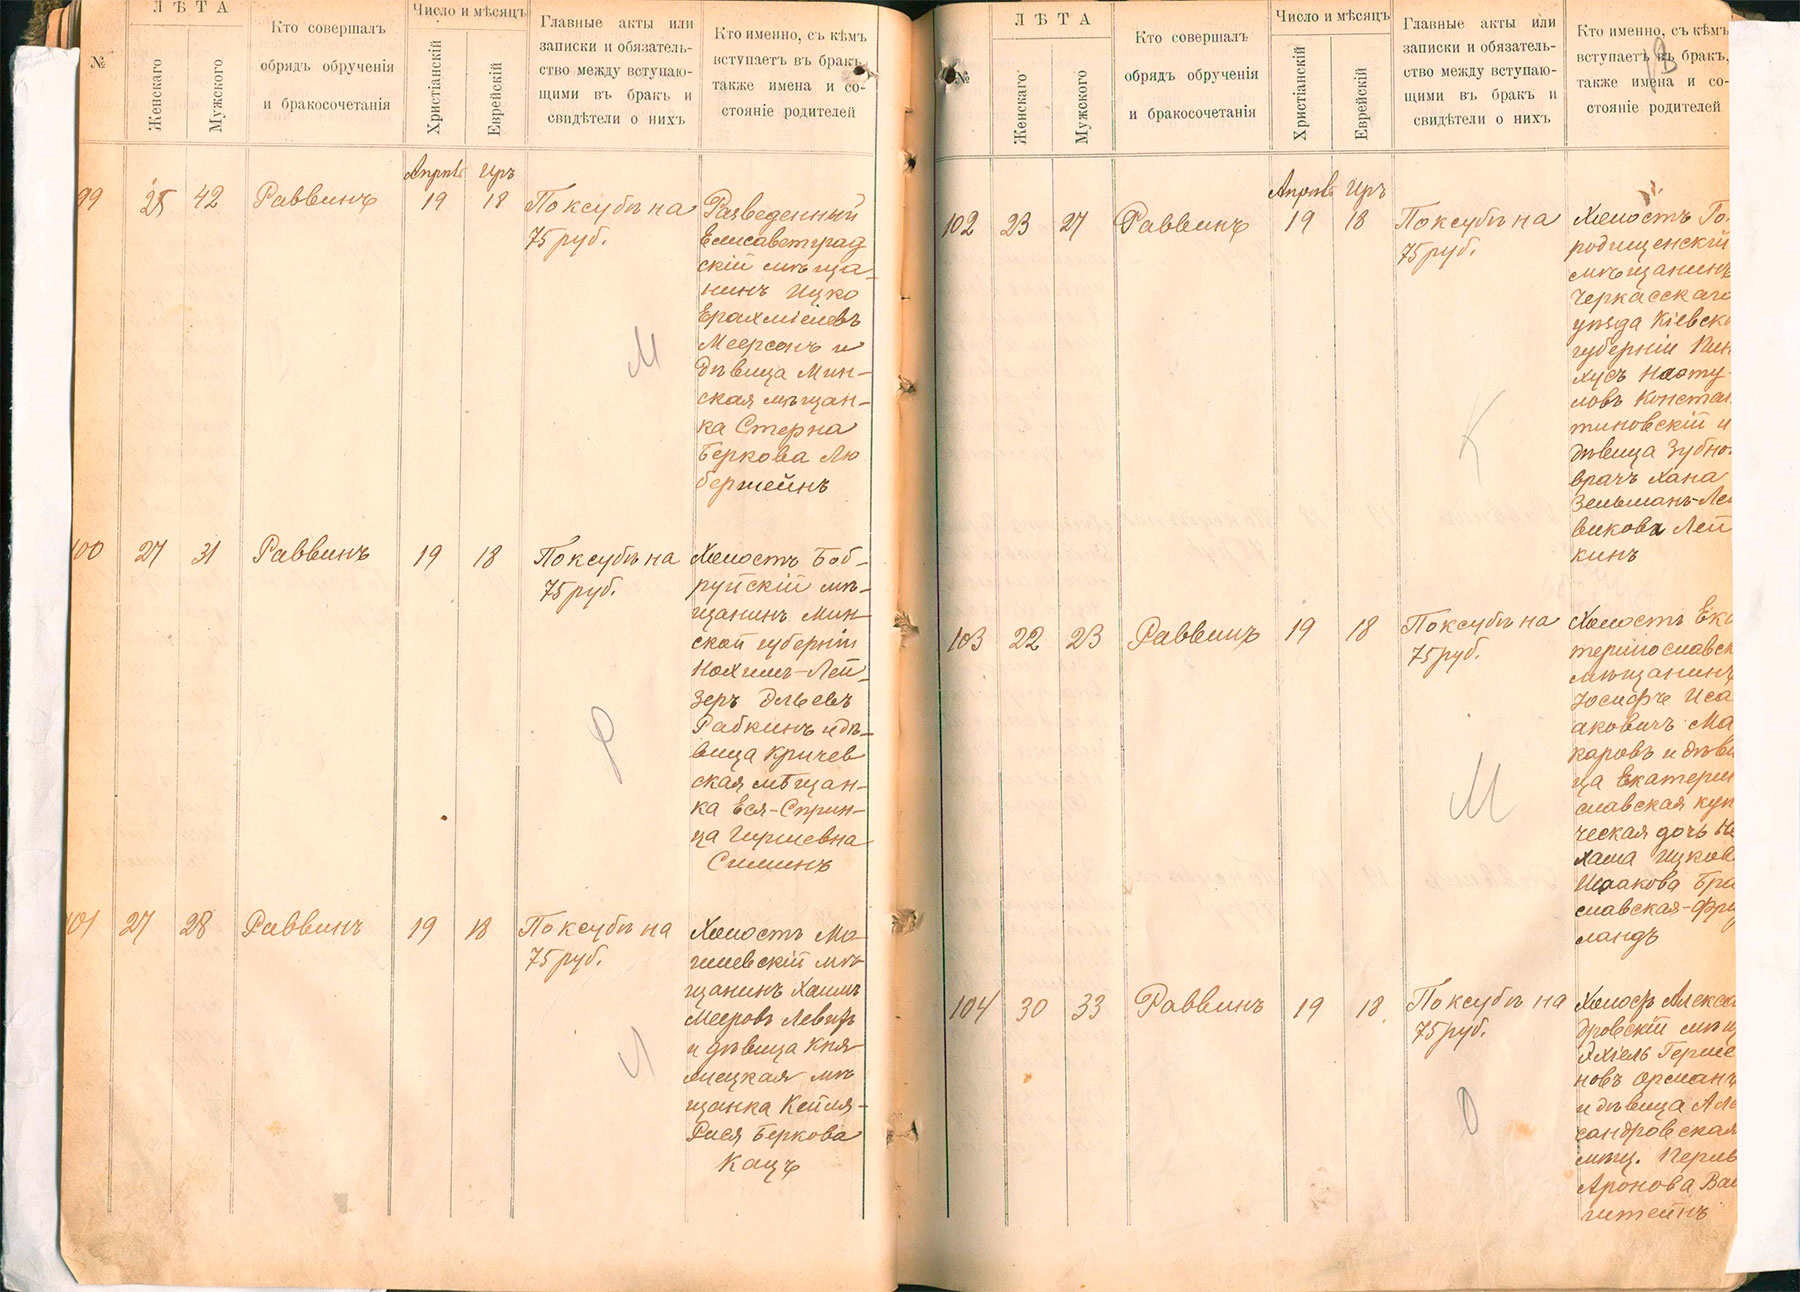 ЛѢТА
Число и мѣсяцъ
№
Женскаго
Мужского
Кто совершалъ
обрядъ обрученія
и бракосочетанія
Христіанскій
Еврейскій
Главные акты или
записки и обязатель-
ство между вступаю-
щими въ бракъ и
свидѣтели о нихъ
Кто именно, съ кѣмъ
вступаетъ въ бракъ,
также имена и со-
стояніе родителей
Апрѣль Иръ
99 25 42 Раввинъ 19 18 По ксубѣ на
75 руб.
Разведенный
Елисаветград
скій мѣща-
нинъ Ицко
Ерахміелевъ
Меерсонъ и
дѣвица Мин-
ская мѣщан-
ка Стерна
Беркова Лю
бершейнъ
М
100 27 31 Раввинъ 19 18 По ксубѣ на
75 руб.
Холостъ Боб-
руйскій мѣ-
щанинъ Мин-
ской губерніи
Нохимъ-Лей-
зеръ Эльевъ
Рабкинъ и дѣ-
вица Кричев
ская мѣщан-
ка Еся-Сприн-
ца Гиршевна
Симинъ
Р
101 27 28 Раввинъ 19 18 По ксубѣ на
75 руб.
Холостъ Мо-
гилевскій мѣ-
щанинъ Хаимъ
Мееровъ Левитъ
и дѣвица Кня-
жицкая мѣ
щанка Кейля-
Рися Беркова
Кацъ
Л
ЛѢТА
Число и мѣсяцъ
№
Женскаго
Мужского
Кто совершалъ
обрядъ обрученія
и бракосочетанія
Христіанскій
Еврейскій
Главные акты или
записки и обязатель-
ство между вступаю-
щими въ бракъ и
свидѣтели о нихъ
Кто именно, съ кѣмъ
вступаетъ въ бракъ,
также имена и со-
стояніе родителей
Апрѣль Иръ
102 23 27 Раввинъ 19 18 По ксубѣ на
75 руб.
Холостъ Го
родищенскій
мѣщанинъ
Черкасскаго
уѣзда Кіевск
губерніи Пин
хусъ Нафту-
ловъ Констан
тиновскій и
дѣвица Зубно
врачъ Хана
Зельманъ-Лей
викова Лей
кинъ
К
103 22 23 Раввинъ 19 18 По ксубѣ на
75 руб.
Холостъ Ека
теринославск
мѣщанинъ
Іосифъ Иса
аковичъ Ма
каровъ и дѣви
ца Екатерин
славская куп
ческая дочь Не
хама Ицков
Исаакова Бра
славская-Фрид
ландъ
М
104 30 33 Раввинъ 19 18 По ксубѣ на
75 руб.
Холостъ Алекса
дровскій мѣщ
Эхіель Герше
новъ Орманъ
и дѣвица Але
сандровская
мѣщ. Перль
Аронова Вай
штейнъ
О